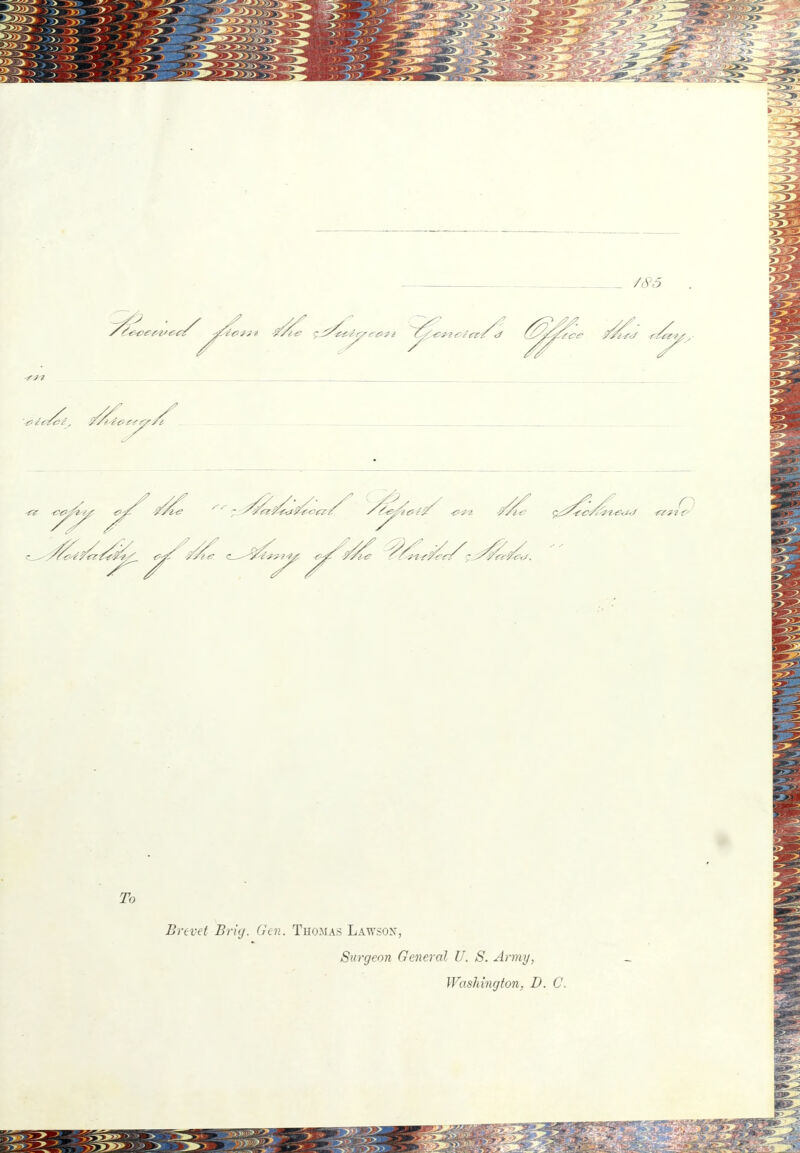 185 .
Received from the Surgeon General's Office this day,
in
order, through
a copy of the "Statistical Report on the Sickness and
Mortality of the Army of the United States."
To
Brevet Brig. Gen. THOMAS LAWSON,
Surgeon General U. S. Army,
Washington, D. C.